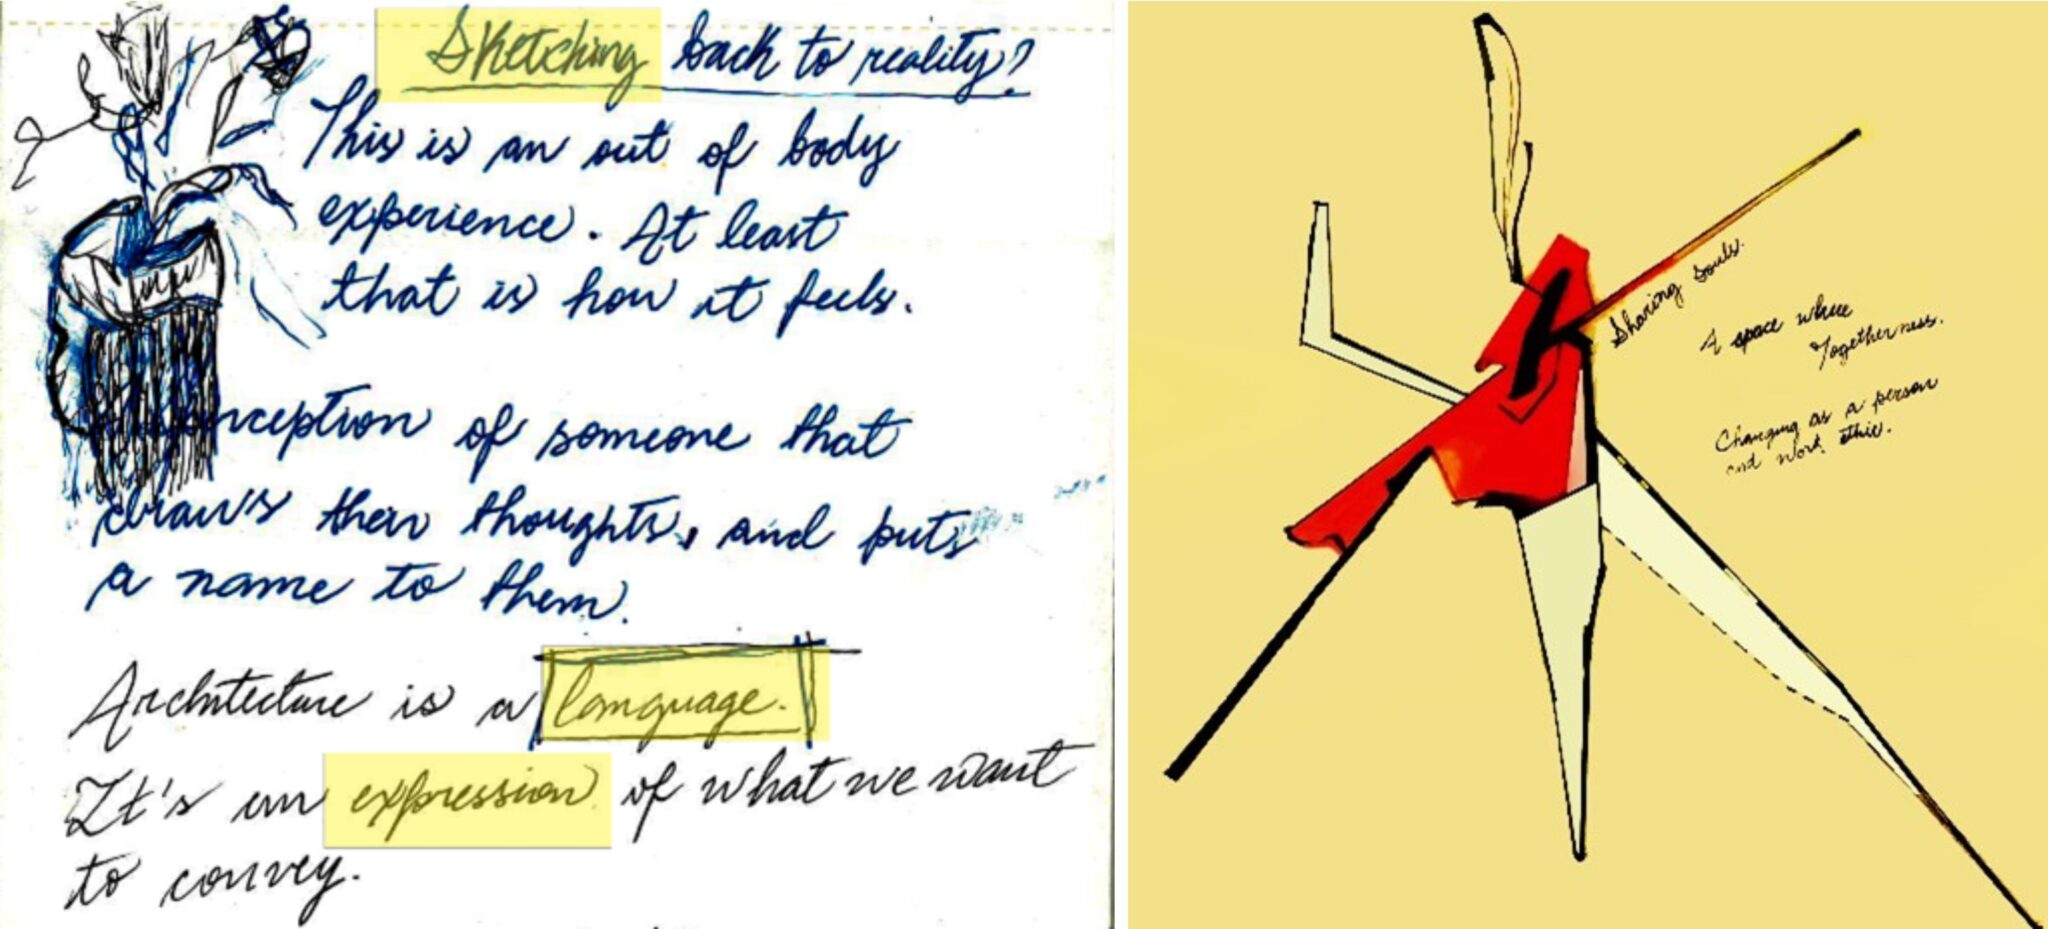 Sketching back to reality?
This is an out of body
experience. At least
that is how it feels.
conception of someone that
draws their thoughts, and puts
a name to them.
Architecture is a language.
It's an expression of what we want
to convey.
Sharing souls.
A space where
Togetherness.
Changing as a person
and work ethic.